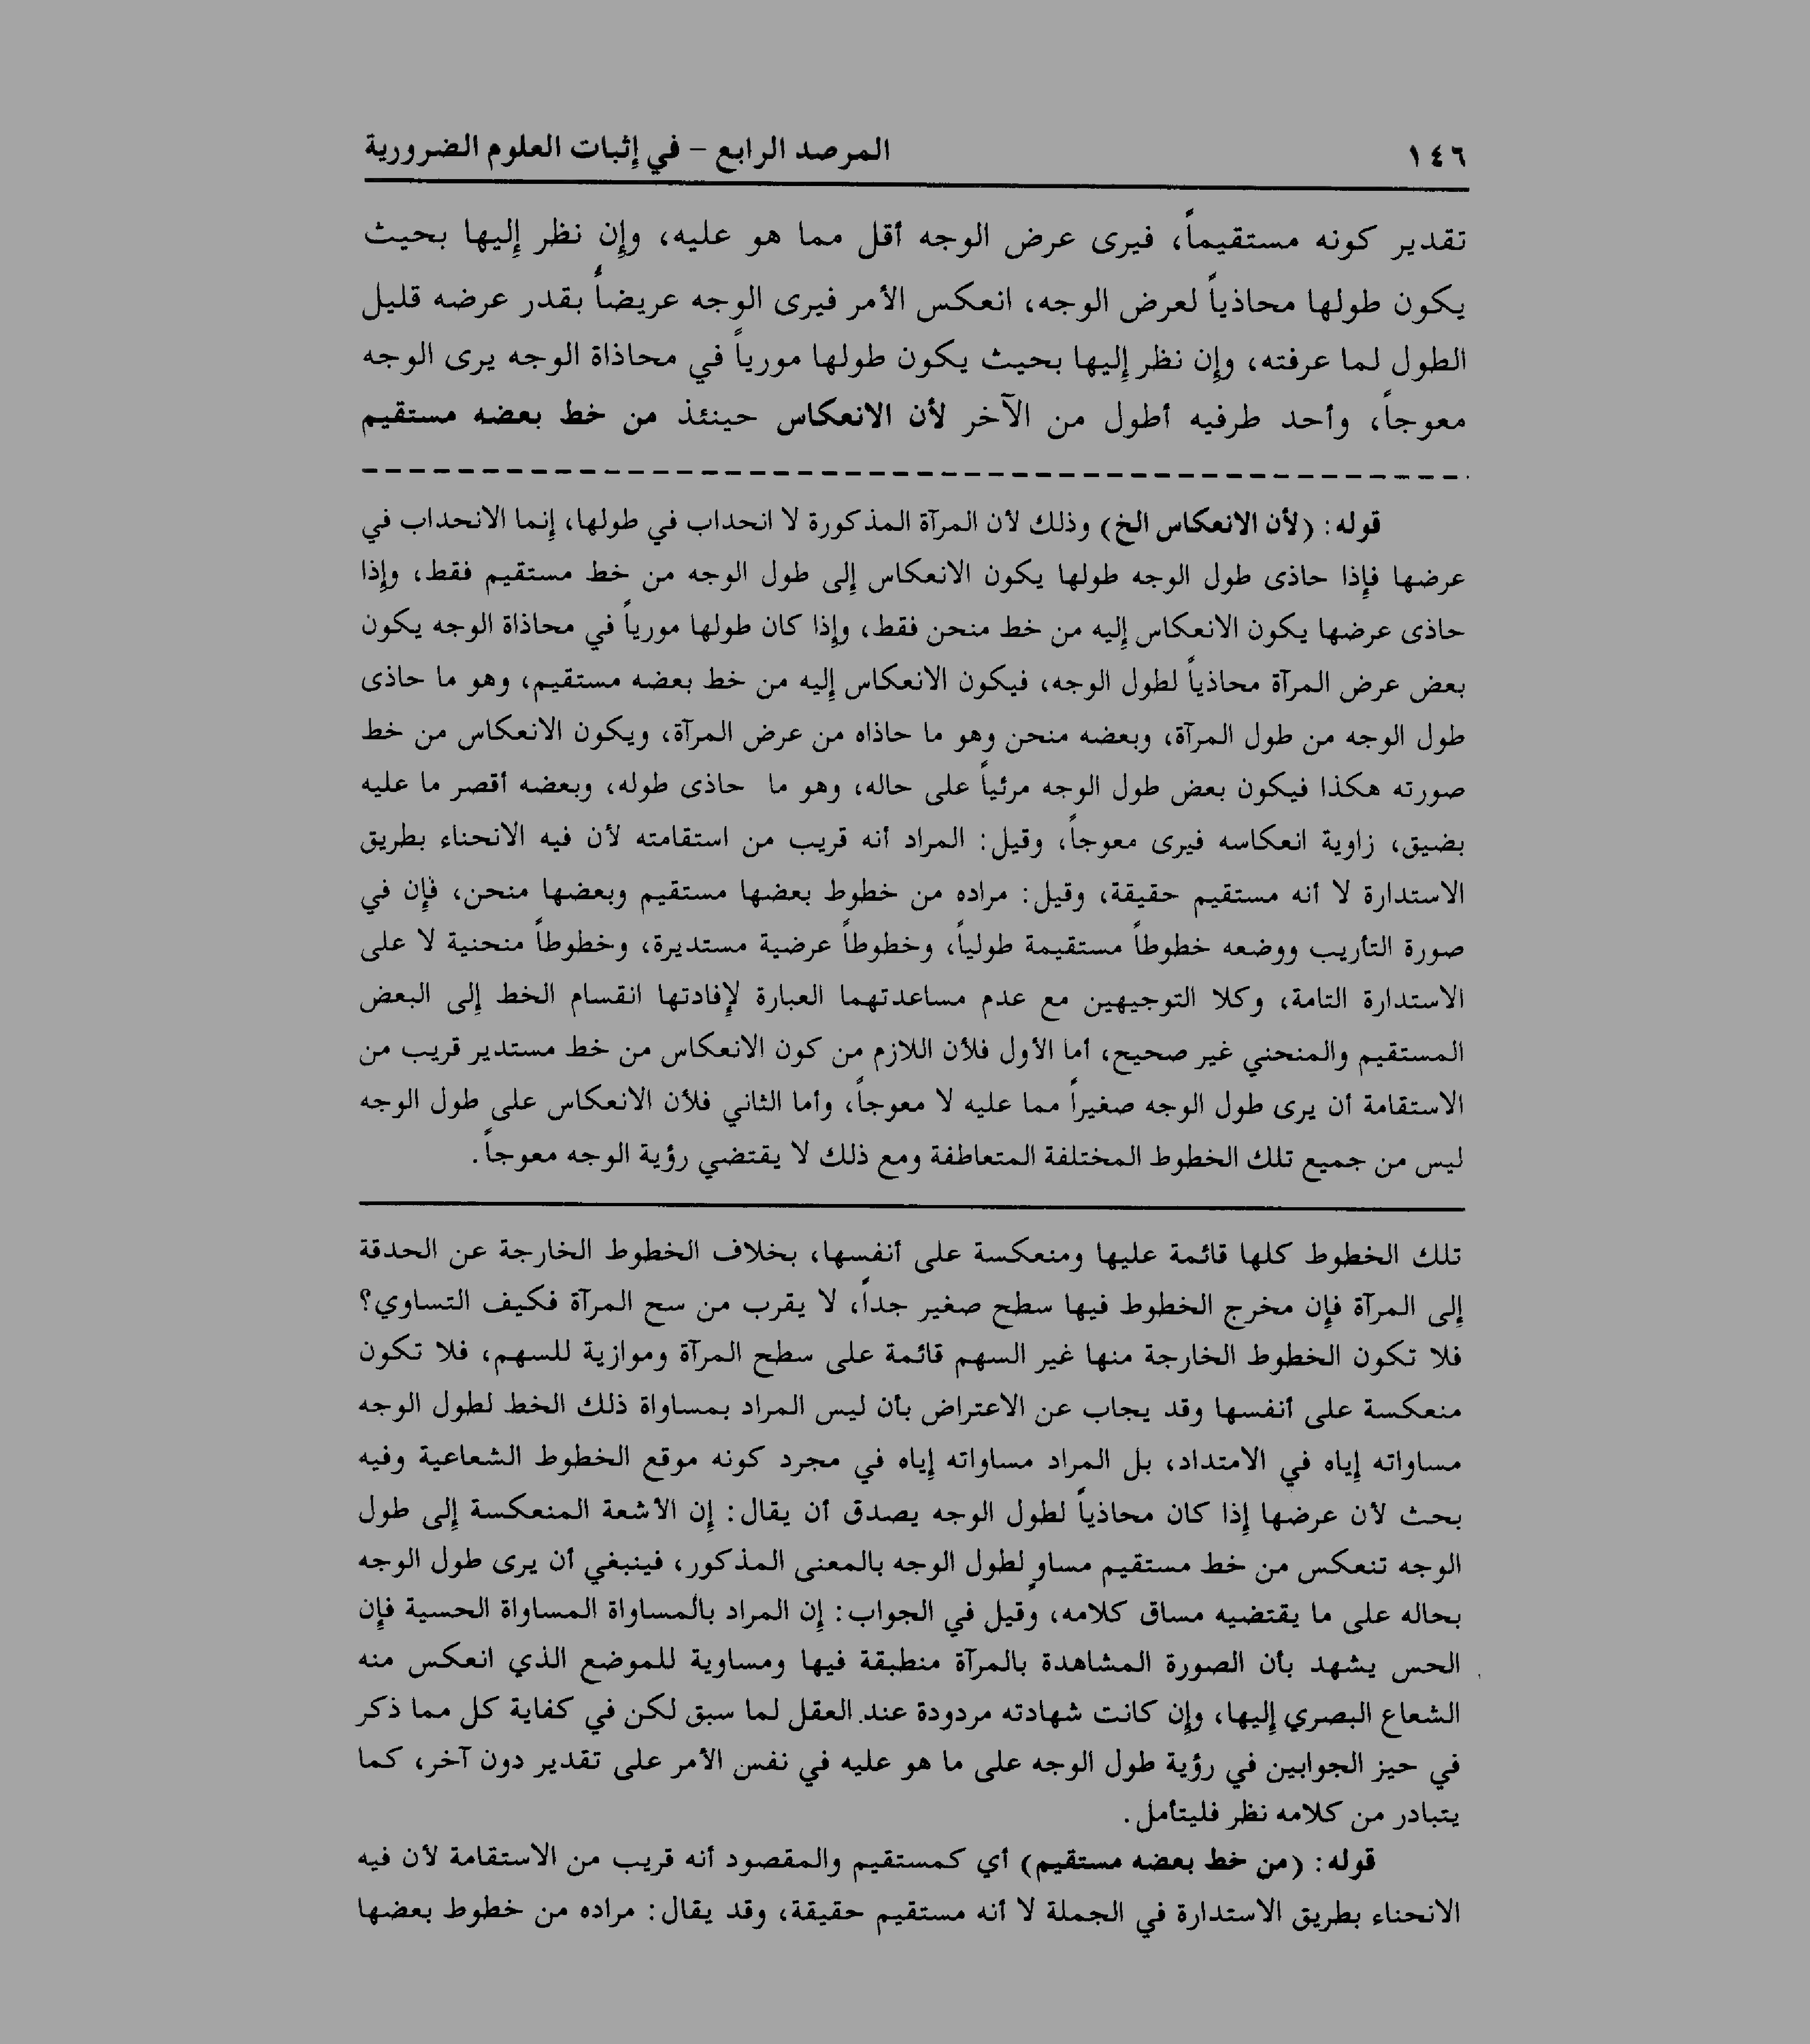 ١٤٦ المرصد الرابع – في إثبات العلوم الضرورية
تقدير كونه مستقيماً، فيرى عرض الوجه أقل مما هو عليه، وإن نظر إليها بحيث
يكون طولها محاذياً لعرض الوجه، انعكس الأمر فيرى الوجه عريضاً بقدر عرضه قليل
الطول لما عرفته، وإن نظر إليها بحيث يكون طولها مورياً في محاذاة الوجه يرى الوجه
معوجاً، وأحد طرفيه أطول من الآخر لأن الانعكاس حينئذ من خط بعضه مستقيم
قوله: (لأن الانعكاس الخ) وذلك لأن المرآة المذكورة لا انحداب في طولها، إنما الانحداب في
عرضها فإذا حاذى طول الوجه طولها يكون الانعكاس إلى طول الوجه من خط مستقيم فقط، وإذا
حاذى عرضها يكون الانعكاس إليه من خط منحن فقط، وإذا كان طولها مورياً في محاذاة الوجه يكون
بعض عرض المرآة محاذياً لطول الوجه، فيكون الانعكاس إليه من خط بعضه مستقيم، وهو ما حاذى
طول الوجه من طول المرآة، وبعضه منحن وهو ما حاذاه من عرض المرآة، ويكون الانعكاس من خط
صورته هكذا فيكون بعض طول الوجه مرئياً على حاله، وهو ما حاذى طوله، وبعضه أقصر ما عليه
بضيق، زاوية انعكاسه فيرى معوجاً، وقيل: المراد أنه قريب من استقامته لأن فيه الانحناء بطريق
الاستدارة لا أنه مستقيم حقيقة، وقيل: مراده من خطوط بعضها مستقيم وبعضها منحن، فإن في
صورة التأريب ووضعه خطوطاً مستقيمة طولياً، وخطوطاً عرضية مستديرة، وخطوطاً منحنية لا على
الاستدارة التامة، وكلا التوجيهين مع عدم مساعدتهما العبارة لإفادتها انقسام الخط إلى البعض
المستقيم والمنحني غير صحيح، أما الأول فلأن اللازم من كون الانعكاس من خط مستدير قريب من
الاستقامة أن يرى طول الوجه صغيراً مما عليه لا معوجاً، وأما الثاني فلأن الانعكاس على طول الوجه
ليس من جميع تلك الخطوط المختلفة المتعاطفة ومع ذلك لا يقتضي رؤية الوجه معوجاً.
تلك الخطوط كلها قائمة عليها ومنعكسة على أنفسها، بخلاف الخطوط الخارجة عن الحدقة
إلى المرآة فإن مخرج الخطوط فيها سطح صغير جداً، لا يقرب من سح المرآة فكيف التساوي؟
فلا تكون الخطوط الخارجة منها غير السهم قائمة على سطح المرآة وموازية للسهم، فلا تكون
منعكسة على أنفسها وقد يجاب عن الاعتراض بأن ليس المراد بمساواة ذلك الخط لطول الوجه
مساواته إياه في الامتداد، بل المراد مساواته إياه في مجرد كونه موقع الخطوط الشعاعية وفيه
بحث لأن عرضها إذا كان محاذياً لطول الوجه يصدق أن يقال: إن الأشعة المنعكسة إلى طول
الوجه تنعكس من خط مستقيم مساوٍ لطول الوجه بالمعنى المذكور، فينبغي أن يرى طول الوجه
بحاله على ما يقتضيه مساق كلامه، وقيل في الجواب: إن المراد بالمساواة المساواة الحسية فإن
الحس يشهد بأن الصورة المشاهدة بالمرآة منطبقة فيها ومساوية للموضع الذي انعكس منه
الشعاع البصري إليها، وإن كانت شهادته مردودة عند العقل لما سبق لكن في كفاية كل مما ذكر
في حيز الجوابين في رؤية طول الوجه على ما هو عليه في نفس الأمر على تقدير دون آخر، كما
يتبادر من كلامه نظر فليتأمل.
قوله: (من خط بعضه مستقيم) أي كمستقيم والمقصود أنه قريب من الاستقامة لأن فيه
الانحناء بطريق الاستدارة في الجملة لا أنه مستقيم حقيقة، وقد يقال: مراده من خطوط بعضها